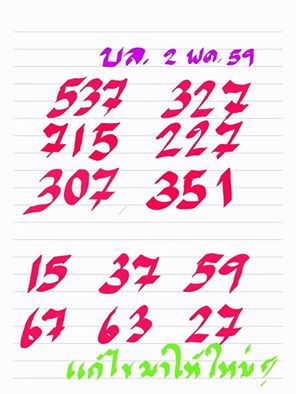 บล. 2 พค. 59
537 327
715 227
307 351
15 37 59
67 63 27
แก้ไขมาให้ใหม่ๆ